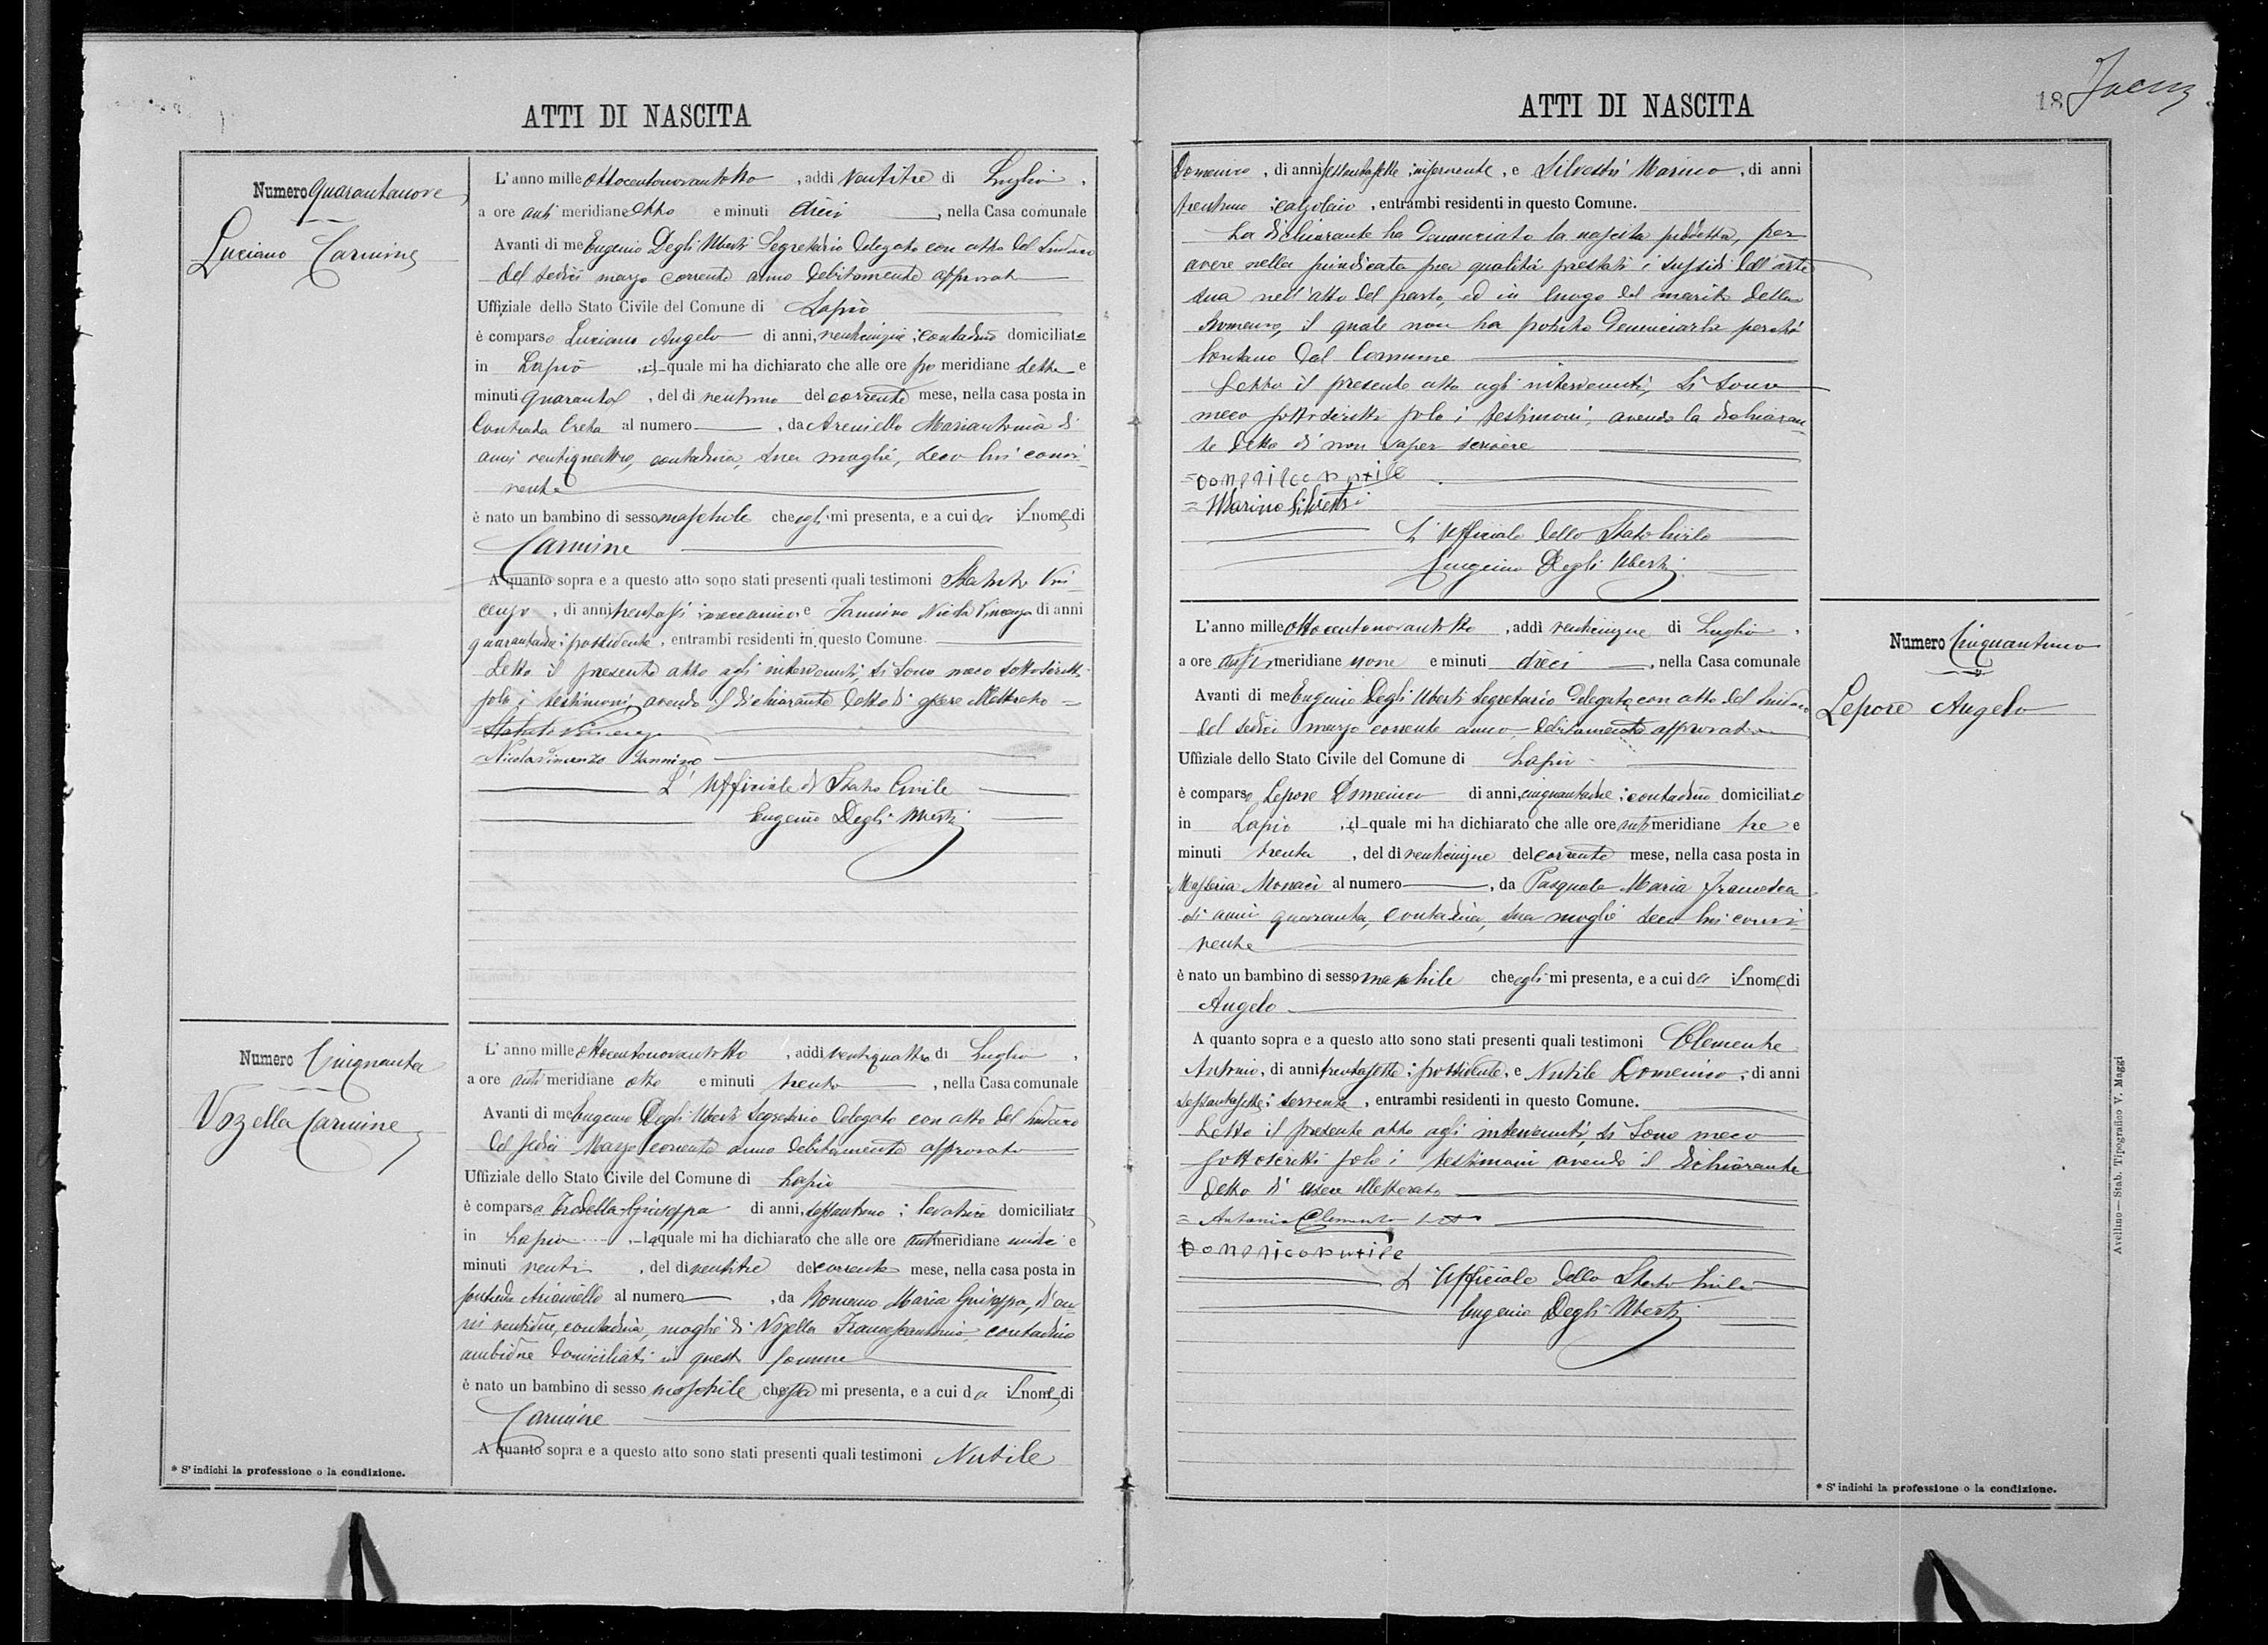 ATTI DI NASCITA
Numero Quarantanove
Luciano Carmine
L'anno mille ottocentonovantotto, addì ventitre di Luglio,
a ore anti meridiane otto e minuti dieci, nella Casa comunale
Avanti di me Eugenio Degli Uberti Segretario delegato con atto del Sindaco
del sedici marzo corrente anno debitamente approvato
Uffiziale dello Stato Civile del Comune di Lapio
è comparso Luciano Angelo di anni, venticinque, contadino domiciliato
in Lapio, il quale mi ha dichiarato che alle ore po meridiane sette e
minuti quaranta, del dì ventuno del corrente mese, nella casa posta in
Contrada Creta al numero, da Areniello Mariantonia di
anni ventiquattro, contadina, sua moglie, seco lui convi-
vente
è nato un bambino di sesso maschile che egli mi presenta, e a cui da il nome di
Carmine
A quanto sopra e a questo atto sono stati presenti quali testimoni Statuto Vin-
cenzo, di anni trentasei, meccanico, e Jannino Nicola Vincenzo di anni
possidente, entrambi residenti in questo Comune.
Letto il presente atto agli intervenuti, si sono meco sottoscritti
solo i testimoni, avendo il dichiarante detto di essere illetterato =
= Statuto Vincenzo
Nicola Vincenzo Jannino
L'Ufficiale di Stato Civile
Eugenio Degli Uberti
Numero Cinquanta
Vozella Carmine
L'anno mille ottocentonovantotto, addì ventiquattro di Luglio,
a ore anti meridiane otto e minuti trenta, nella Casa comunale
Avanti di me Eugenio Degli Uberti Segretario delegato con atto del Sindaco
del sedici Marzo corrente anno debitamente approvato
Uffiziale dello Stato Civile del Comune di Lapio
è comparsa Giuseppa di anni, sessantuno, levatrice domiciliata
in Lapio, la quale mi ha dichiarato che alle ore anti meridiane undici e
minuti venti, del dì ventitre del corrente mese, nella casa posta in
Contrada Arianiello al numero, da Romano Maria Giuseppa, d'an-
ni ventidue, contadina, moglie di Vozella Francescantonio contadino
ambidue domiciliati in questo Comune
è nato un bambino di sesso maschile che essa mi presenta, e a cui da il nome di
Carmine
A quanto sopra e a questo atto sono stati presenti quali testimoni Nutile
* S'indichi la professione o la condizione.
ATTI DI NASCITA
18
Domenico, di anni sessantasette, inserviente, e Silvestri Marino, di anni
trentuno, calzolaio, entrambi residenti in questo Comune.
La dichiarante ha denunciato la nascita suddetta, per
avere nella prindicata sua qualità prestati i sussidi dell'arte
sua nell'atto del parto, ed in luogo del marito della
Romano, il quale non ha potuto denunciarla perchè
lontano dal Comune
Letto il presente atto agli intervenuti, si sono
meco sottoscritti solo i testimoni, avendo la dichiaran-
te detto di non saper scrivere
= Marino Silvestri
L'Ufficiale dello Stato Civile
Eugenio Degli Uberti
Numero Cinquantuno
Lepore Angelo
L'anno mille ottocentonovantotto, addì venticinque di Luglio,
a ore anti meridiane nove e minuti dieci, nella Casa comunale
Avanti di me Eugenio Degli Uberti Segretario delegato con atto del Sindaco
del sedici marzo corrente anno debitamente approvato
Uffiziale dello Stato Civile del Comune di Lapio
è comparso Lepore Domenico di anni, contadino domiciliato
in Lapio, il quale mi ha dichiarato che alle ore anti meridiane tre e
minuti trenta, del dì venticinque del corrente mese, nella casa posta in
Masseria Monaci al numero, da Pasquale Maria Francesca
di anni quaranta, contadina, sua moglie seco lui convi-
vente
è nato un bambino di sesso maschile che egli mi presenta, e a cui da il nome di
Angelo
A quanto sopra e a questo atto sono stati presenti quali testimoni Clemente
Antonio, di anni trentasette, possidente, e Nutile Domenico, di anni
sessantasette, servente, entrambi residenti in questo Comune.
Letto il presente atto agli intervenuti, si sono meco
sottoscritti solo i testimoni avendo il dichiarante
detto di essere illetterato
= Antonio Clemente
Domenico nutile
L'Ufficiale dello Stato Civile
Eugenio Degli Uberti
* S'indichi la professione o la condizione.
Avellino — Stab. Tipografico V. Maggi